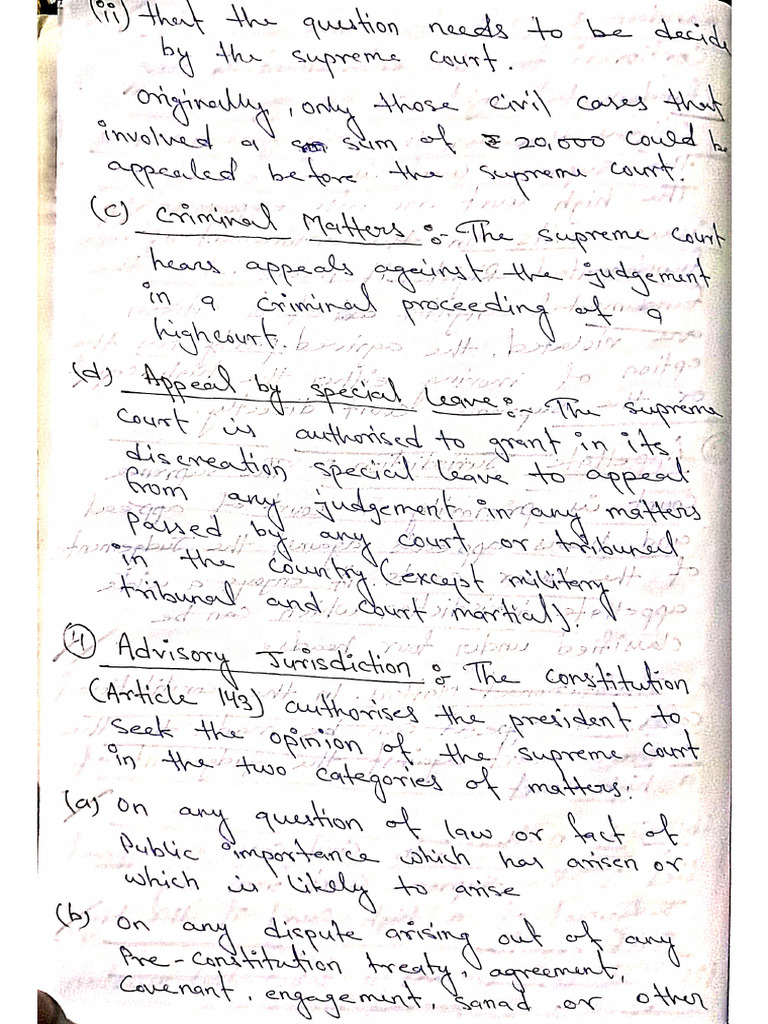 (ii) that the question needs to be decide
by the supreme court.
originally, only those civil cases that
involved a sum of ₹ 20,000 could be
appealed before the supreme court.
(c) Criminal Matters :- The supreme court
hears appeals against the judgement
in a criminal proceeding of a
highcourt.
(d) Appeal by special leave :- The supreme
court is authorised to grant in its
discreation special leave to appeal
from any judgement in any matters
passed by any court or tribunal
in the country (except military
tribunal and court martial).
4 Advisory Jurisdiction : The constitution
(Article 143) authorises the president to
seek the opinion of the supreme court
in the two categories of matters:
(a) on any question of law or fact of
Public importance which has arisen or
which is likely to arise
(b) on any dispute arising out of any
Pre-constitution treaty, agreement,
covenant, engagement, sanad or other